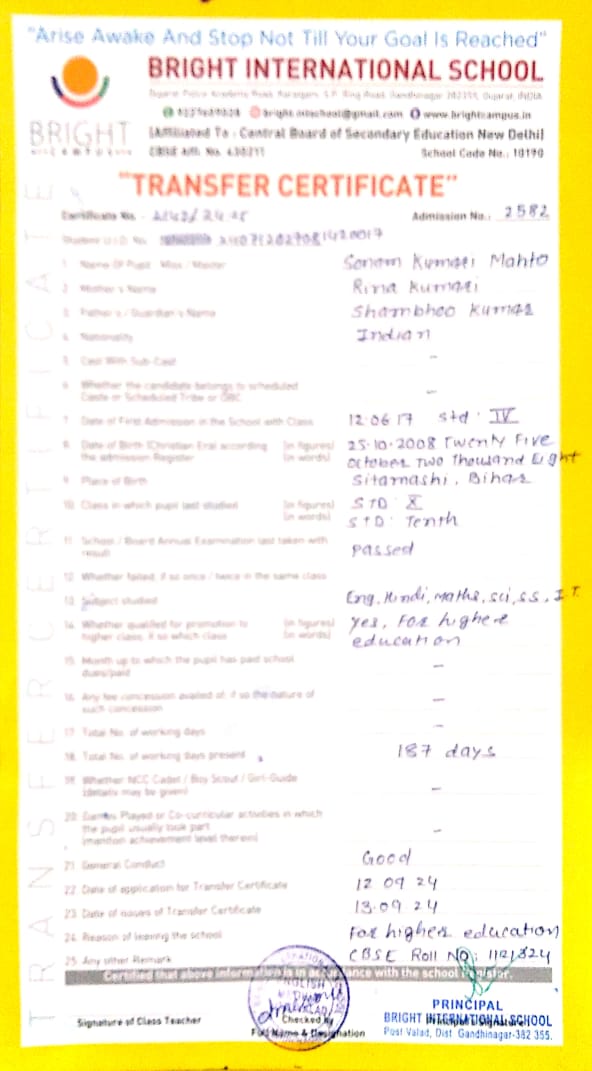 "Arise Awake And Stop Not Till Your Goal Is Reached"
BRIGHT INTERNATIONAL SCHOOL
bright.intschool@gmail.com www.brightcampus.in
BRIGHT (Affiliated To : Central Board of Secondary Education New Delhi)
CBSE Aff. No. 430211 School Code No.: 10190
"TRANSFER CERTIFICATE"
TRANSFER CERTIFICATE
Certificate No. - Admission No.: 2582
Student U.I.D. No.
1. Name Of Pupil Miss / Master Sonam Kumari Mahto
2. Mother's Name Rina Kumari
3. Father's / Guardian's Name Shambhoo Kumar
4. Nationality Indian
5. Cast With Sub-Cast -
6. Whether the candidate belongs to scheduled
Caste or Scheduled Tribe or OBC -
7. Date of First Admission in the School with Class 12.06.17 Std. IV
8. Date of Birth (Christian Era) according (in figures) 25-10-2008 Twenty Five
the admission Register (in words) October Two Thousand Eight
9. Place of Birth Sitamashi, Bihar
10. Class in which pupil last studied (in figures) STD X
(in words) STD Tenth
11. School / Board Annual Examination last taken with
result passed
12. Whether failed, if so once / twice in the same class
13. Subject studied Eng, Hindi, Maths, Sci, S.S., I.T.
14. Whether qualified for promotion to (in figures) Yes, For highere
higher class, if so which class (in words) education
15. Month up to which the pupil has paid school
dues/paid -
16. Any fee concession availed of, if so the nature of
such concession -
17. Total No. of working days -
18. Total No. of working days present 187 days
19. Whether NCC Cadet / Boy Scout / Girl-Guide
(details may be given) -
20. Games Played or Co-curricular activities in which
the pupil usually took part
(mention achievement level therein) -
21. General Conduct Good
22. Date of application for Transfer Certificate 12.09.24
23. Date of issues of Transfer Certificate 13.09.24
24. Reason of leaving the school For higher education
25. Any other Remark CBSE Roll No:
Certified that above information is in accordance with the school register.
PRINCIPAL
Signature of Class Teacher Checked by BRIGHT INTERNATIONAL SCHOOL
Full Name & Designation Post Valad, Dist Gandhinagar-382 355.